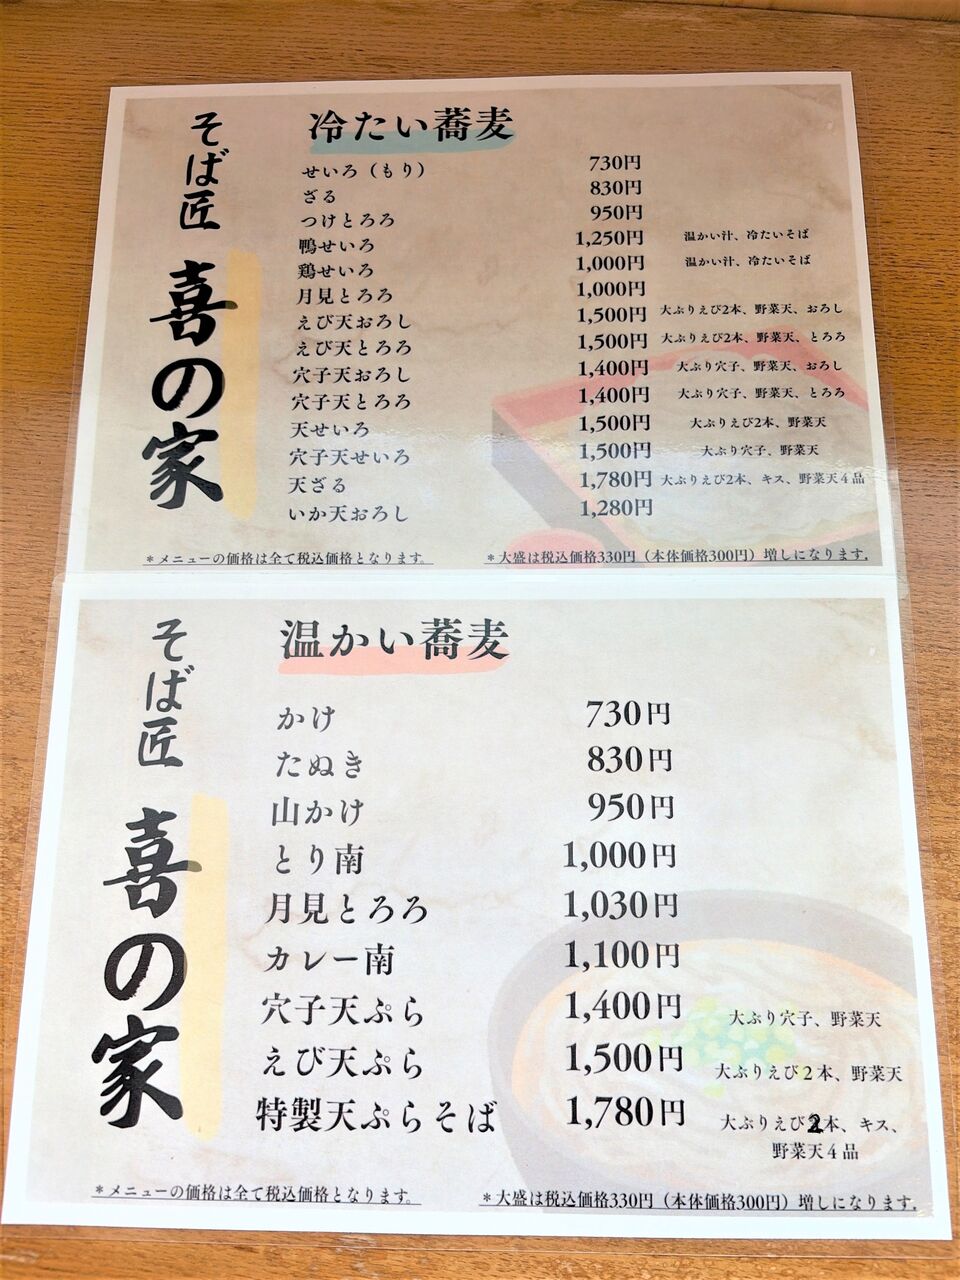 そば匠 喜の家
冷たい蕎麦
せいろ（もり） 730円
ざる 830円
つけとろろ 950円
鴨せいろ 1,250円 温かい汁、冷たいそば
鶏せいろ 1,000円 温かい汁、冷たいそば
月見とろろ 1,000円
えび天おろし 1,500円 大ぶりえび2本、野菜天、おろし
えび天とろろ 1,500円 大ぶりえび2本、野菜天、とろろ
穴子天おろし 1,400円 大ぶり穴子、野菜天、おろし
穴子天とろろ 1,400円 大ぶり穴子、野菜天、とろろ
天せいろ 1,500円 大ぶりえび2本、野菜天
穴子天せいろ 1,500円 大ぶり穴子、野菜天
天ざる 1,780円 大ぶりえび2本、キス、野菜天４品
いか天おろし 1,280円
＊メニューの価格は全て税込価格となります。 ＊大盛は税込価格330円（本体価格300円）増しになります。
そば匠 喜の家
温かい蕎麦
かけ 730円
たぬき 830円
山かけ 950円
とり南 1,000円
月見とろろ 1,030円
カレー南 1,100円
穴子天ぷら 1,400円 大ぶり穴子、野菜天
えび天ぷら 1,500円 大ぶりえび２本、野菜天
特製天ぷらそば 1,780円 大ぶりえび2本、キス、
野菜天４品
＊メニューの価格は全て税込価格となります。 ＊大盛は税込価格330円（本体価格300円）増しになります。